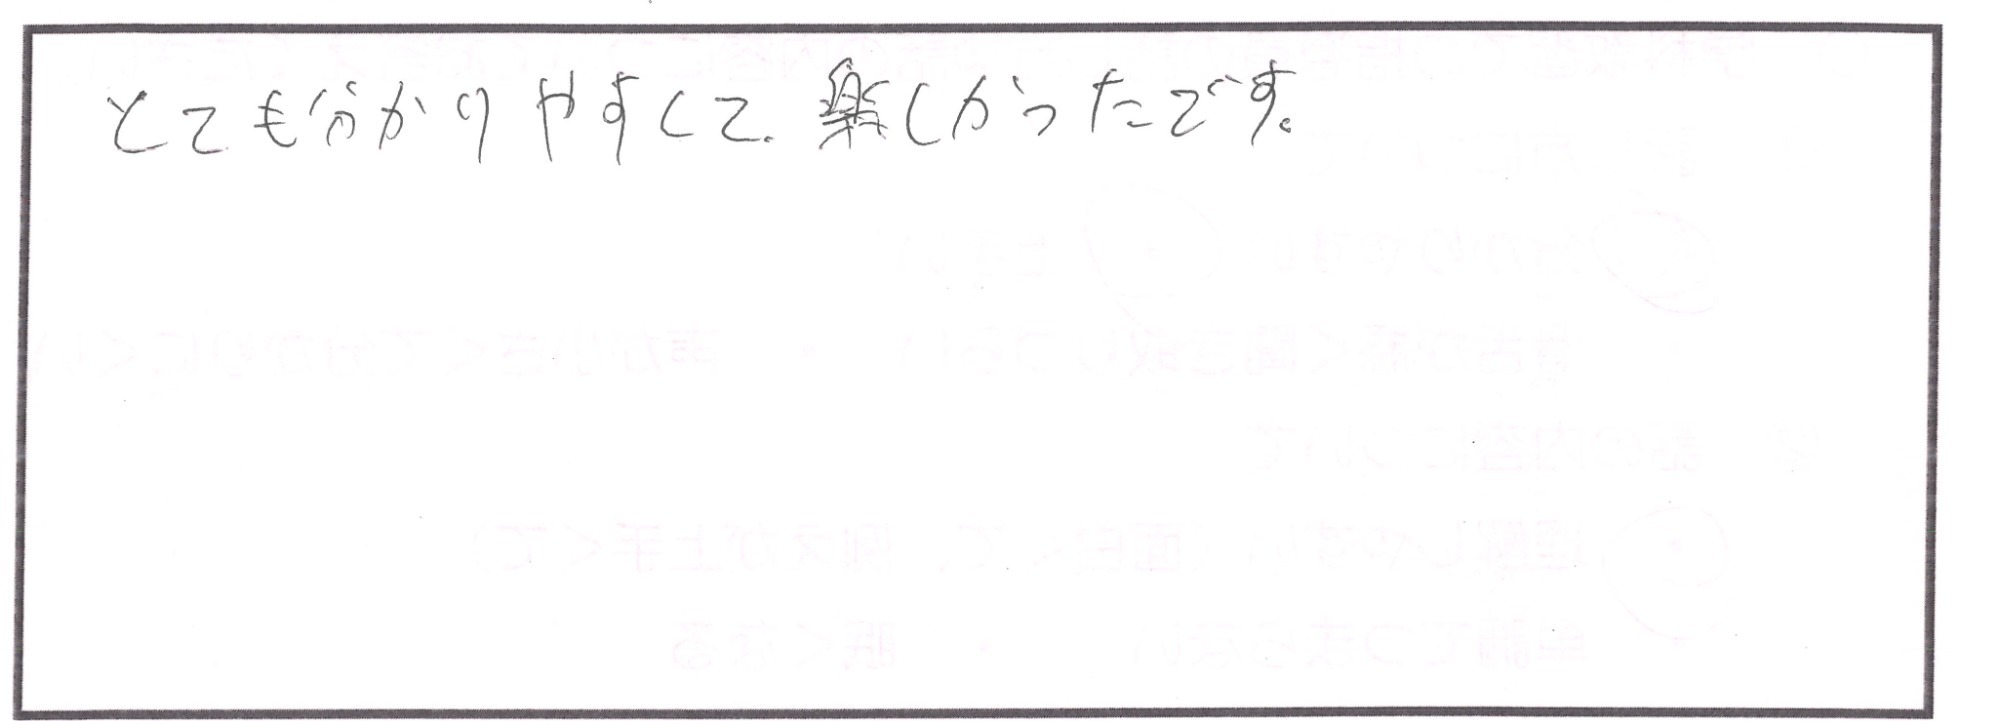 とても分かりやすくて、楽しかったです。